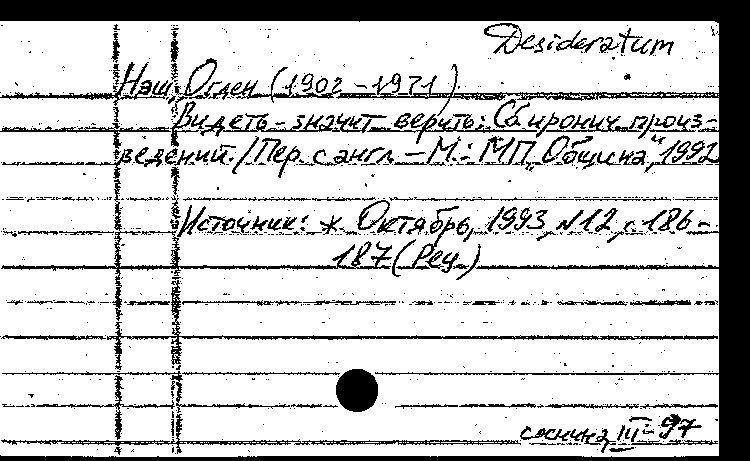 Desideratum
Наш, Огден (1902-1971)
Видеть - значит верить: Сб. иронич. произ-
ведений. / Пер. с англ. - М.: МП "Община", 1992
Источник: ж. Октябрь, 1993, N12, с. 186-
187 (Рец.)
III-97